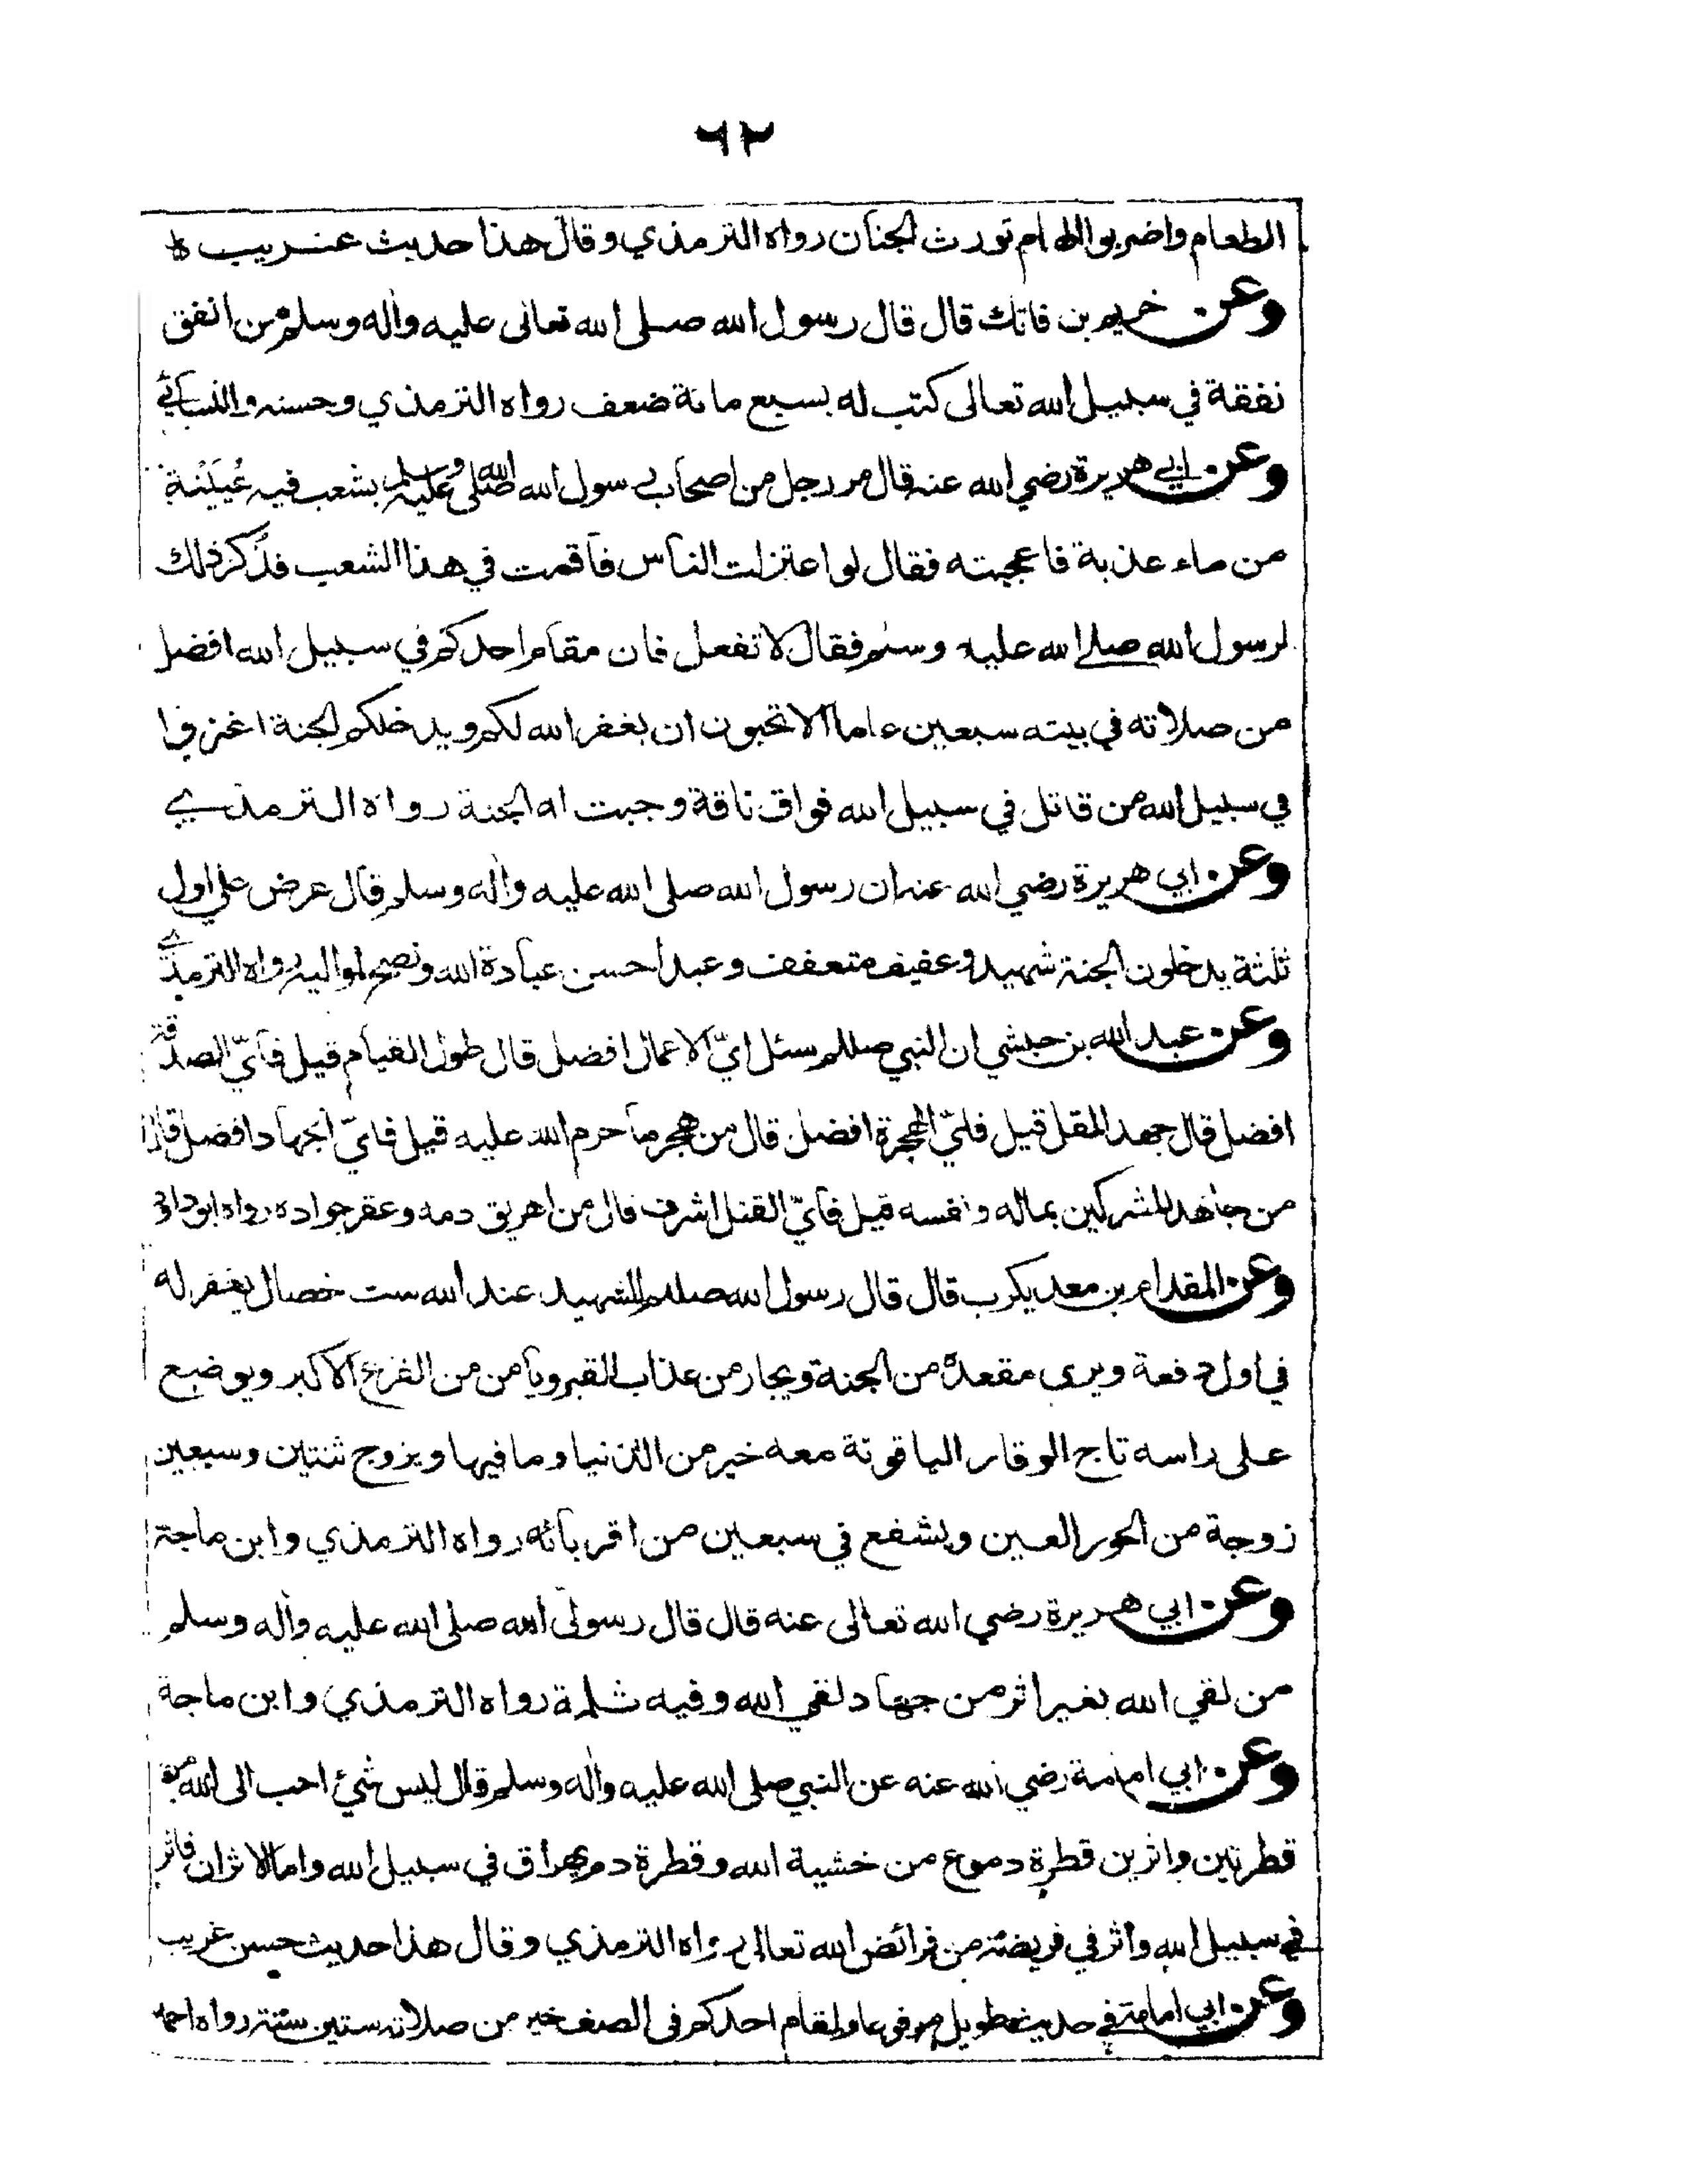 ٦٢
الطعام واضربوا الهام تورث الجنان رواه الترمذي وقال هذا حديث غريب ه
وعن خريم بن فاتك قال قال رسول الله صلى الله تعالى عليه واله وسلم من انفق
نفقة في سبيل الله تعالى كتب له بسبع مائة ضعف رواه الترمذي وحسنه والنسائي
وعن ابي هريرة رضي الله عنه قال مر رجل من اصحاب رسول الله صلى الله عليه وسلم بشعب فيه عُيَيْنة
من ماء عذبة فاعجبته فقال لو اعتزلت الناس فاقمت في هذا الشعب فذكر ذلك
لرسول الله صلى الله عليه وسلم فقال لا تفعل فان مقام احدكم في سبيل الله افضل
من صلاته في بيته سبعين عاما الا تحبون ان يغفر الله لكم ويدخلكم الجنة اغزوا
في سبيل الله من قاتل في سبيل الله فواق ناقة وجبت له الجنة رواه الترمذي
وعن ابي هريرة رضي الله عنه ان رسول الله صلى الله عليه واله وسلم قال عرض علي اول
ثلثة يدخلون الجنة شهيد وعفيف متعفف وعبد احسن عبادة الله ونصح لمواليه رواه الترمذي
وعن عبد الله بن حبشي ان النبي صللم سئل ايّ الاعمال افضل قال طول القيام قيل فايّ الصدقة
افضل قال جهد المقل قيل فايّ الهجرة افضل قال من هجر ما حرم الله عليه قيل فايّ الجهاد افضل قال
من جاهد المشركين بماله ونفسه قيل فايّ القتل اشرف قال من اهريق دمه وعقر جواده رواه ابو داؤد
وعن المقدام بن معد يكرب قال قال رسول الله صللم للشهيد عند الله ست خصال يغفر له
في اول دفعة ويرى مقعده من الجنة ويجار من عذاب القبر ويامن من الفزع الاكبر ويوضع
على راسه تاج الوقار الياقوتة معه خير من الدنيا وما فيها ويزوج ثنتين وسبعين
زوجة من الحور العين ويشفع في سبعين من اقربائه رواه الترمذي وابن ماجة
وعن ابي هريرة رضي الله تعالى عنه قال قال رسول الله صلى الله عليه واله وسلم
من لقي الله بغير اثر من جهاد لقي الله وفيه ثلمة رواه الترمذي وابن ماجة
وعن ابي امامة رضي الله عنه عن النبي صلى الله عليه واله وسلم قال ليس شئ احب الى الله من
قطرتين واثرين قطرة دموع من خشية الله وقطرة دم يهراق في سبيل الله واما الاثران فاثر
في سبيل الله واثر في فريضة من فرائض الله تعالى رواه الترمذي وقال هذا حديث حسن غريب
وعن ابي امامة في حديث طويل مرفوعا ولمقام احدكم في الصف خير من صلاته ستين سنة رواه احمد